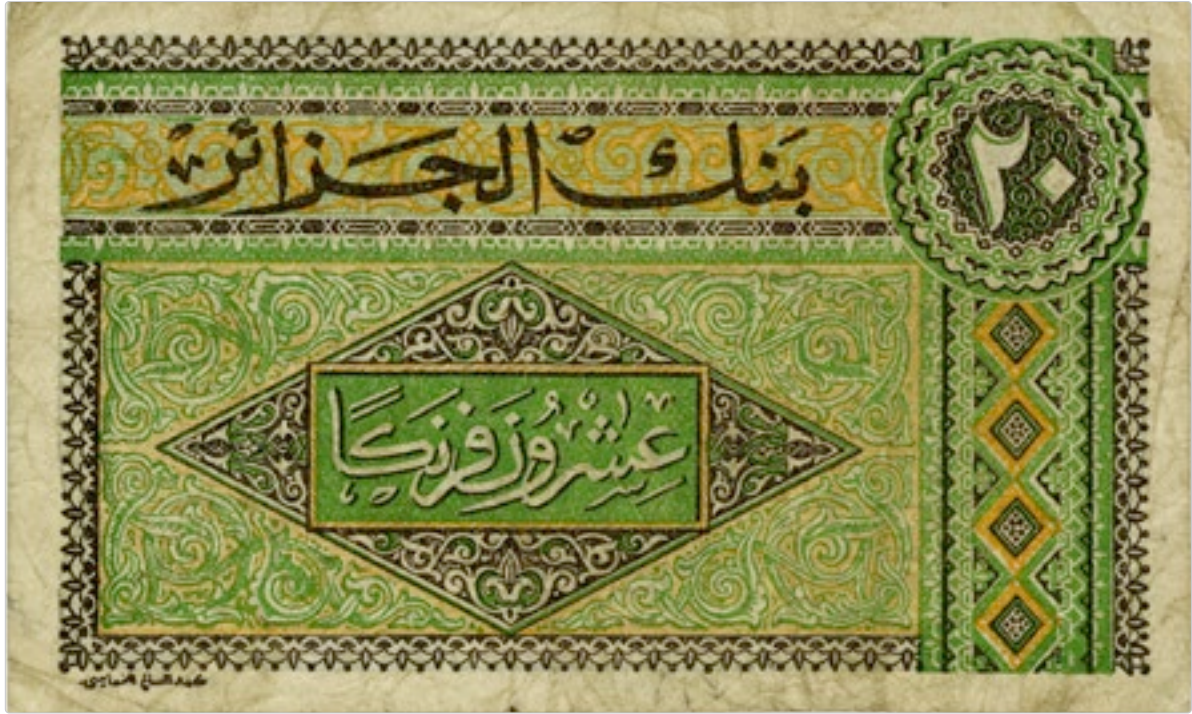 بَنك الجزائر
٢٠
عِشرُون فرنكًا